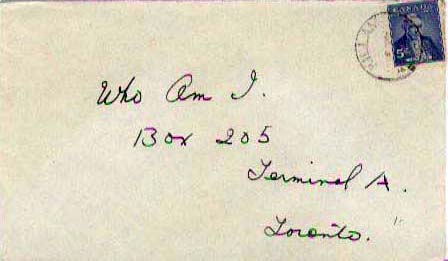 CANADA
5
Who Am I.
Box 205
Terminal A.
Toronto.